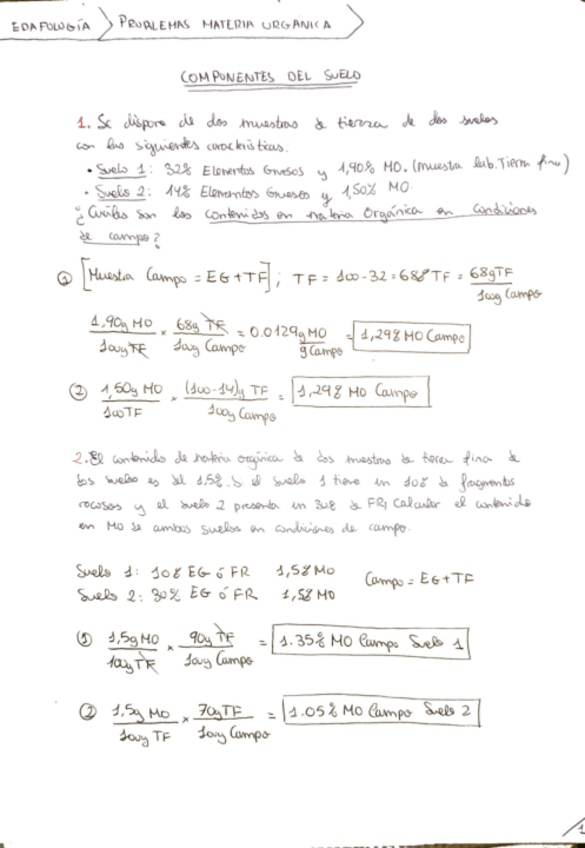 EDAFOLOGÍA PROBLEMAS MATERIA ORGÁNICA
COMPONENTES DEL SUELO
1. Se dispone de dos muestras de tierra de dos suelos
con las siguientes características:
• Suelo 1: 32% Elementos Gruesos y 1,90% MO. (Muestra lab. Tierra fina)
• Suelo 2: 14% Elementos Gruesos y 1,50% MO.
¿Cuáles son los contenidos en materia Orgánica en condiciones
de campo?
① [Muestra Campo = EG + TF]; TF = 100-32 = 68% TF = 68g TF / 100g Campo
1,90g MO / 100g TF × 68g TF / 100g Campo = 0.0129 g MO / g Campo = 1,29% MO Campo
② 1,50g MO / 100 TF × (100-14)g TF / 100g Campo = 1,29% MO Campo
2. El contenido de materia orgánica de dos muestras de tierra fina de
dos suelos es del 1,5%. Si el suelo 1 tiene un 10% de fragmentos
rocosos y el suelo 2 presenta un 30% de FR, Calcular el contenido
en MO de ambos suelos en condiciones de campo.
Suelo 1: 10% EG ó FR 1,5% MO Campo = EG + TF
Suelo 2: 30% EG ó FR 1,5% MO
① 1,5g MO / 100g TF × 90g TF / 100g Campo = 1.35% MO Campo Suelo 1
② 1,5g MO / 100g TF × 70g TF / 100g Campo = 1.05% MO Campo Suelo 2
1